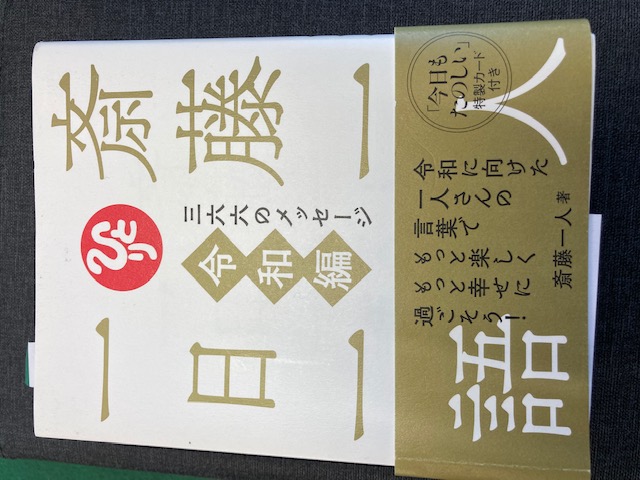 斎藤一人
三六六のメッセージ
令和編
ひとり
一日一語
「今日も
たのしい」
特製カード
付き
令和に向けた
一人さんの
言葉で
もっと楽しく
もっと幸せに
過ごそう！
斎藤一人 著